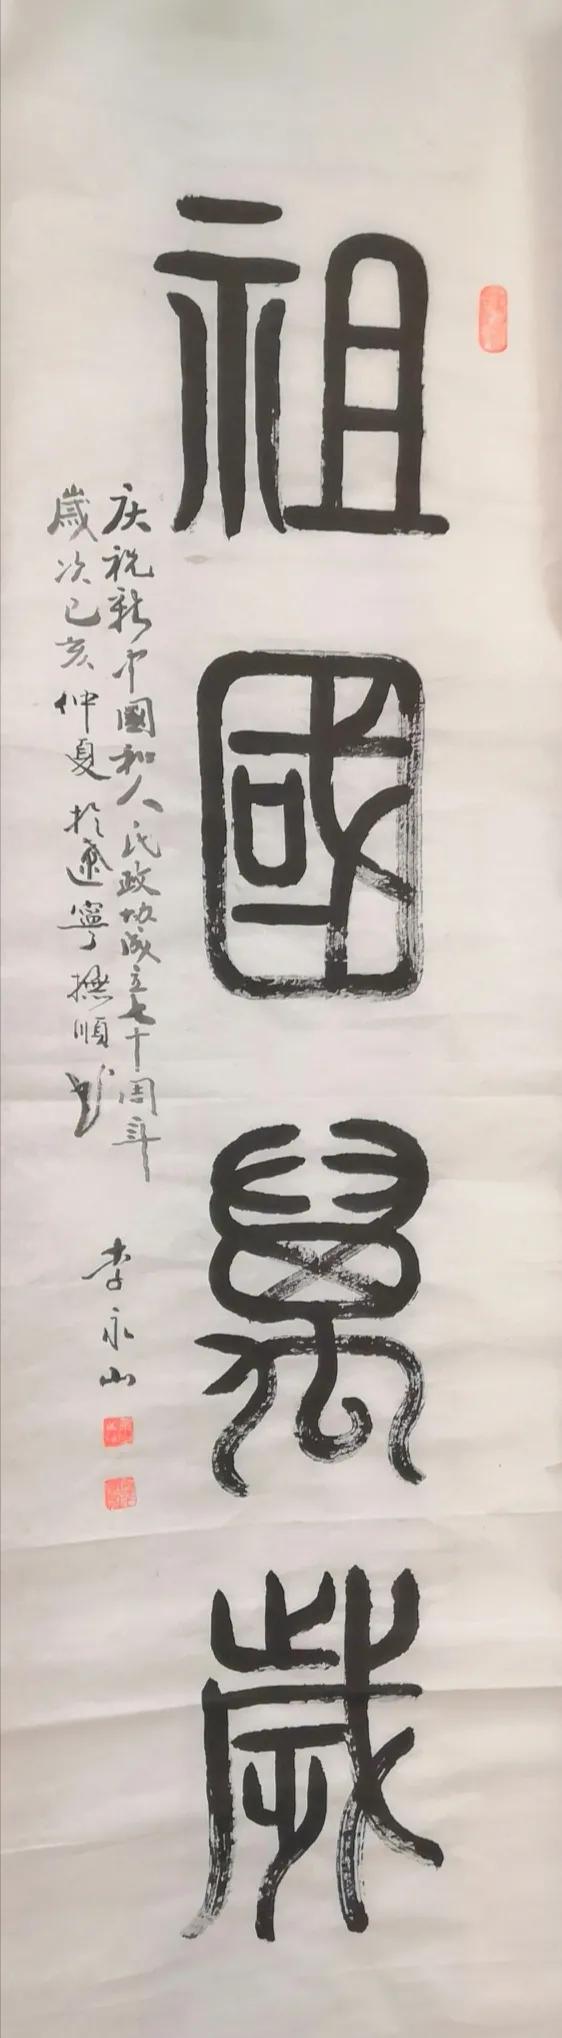 祖國萬歲
庆祝新中國和人民政协成立七十周年
歲次己亥仲夏於遼寧撫順書
李永山